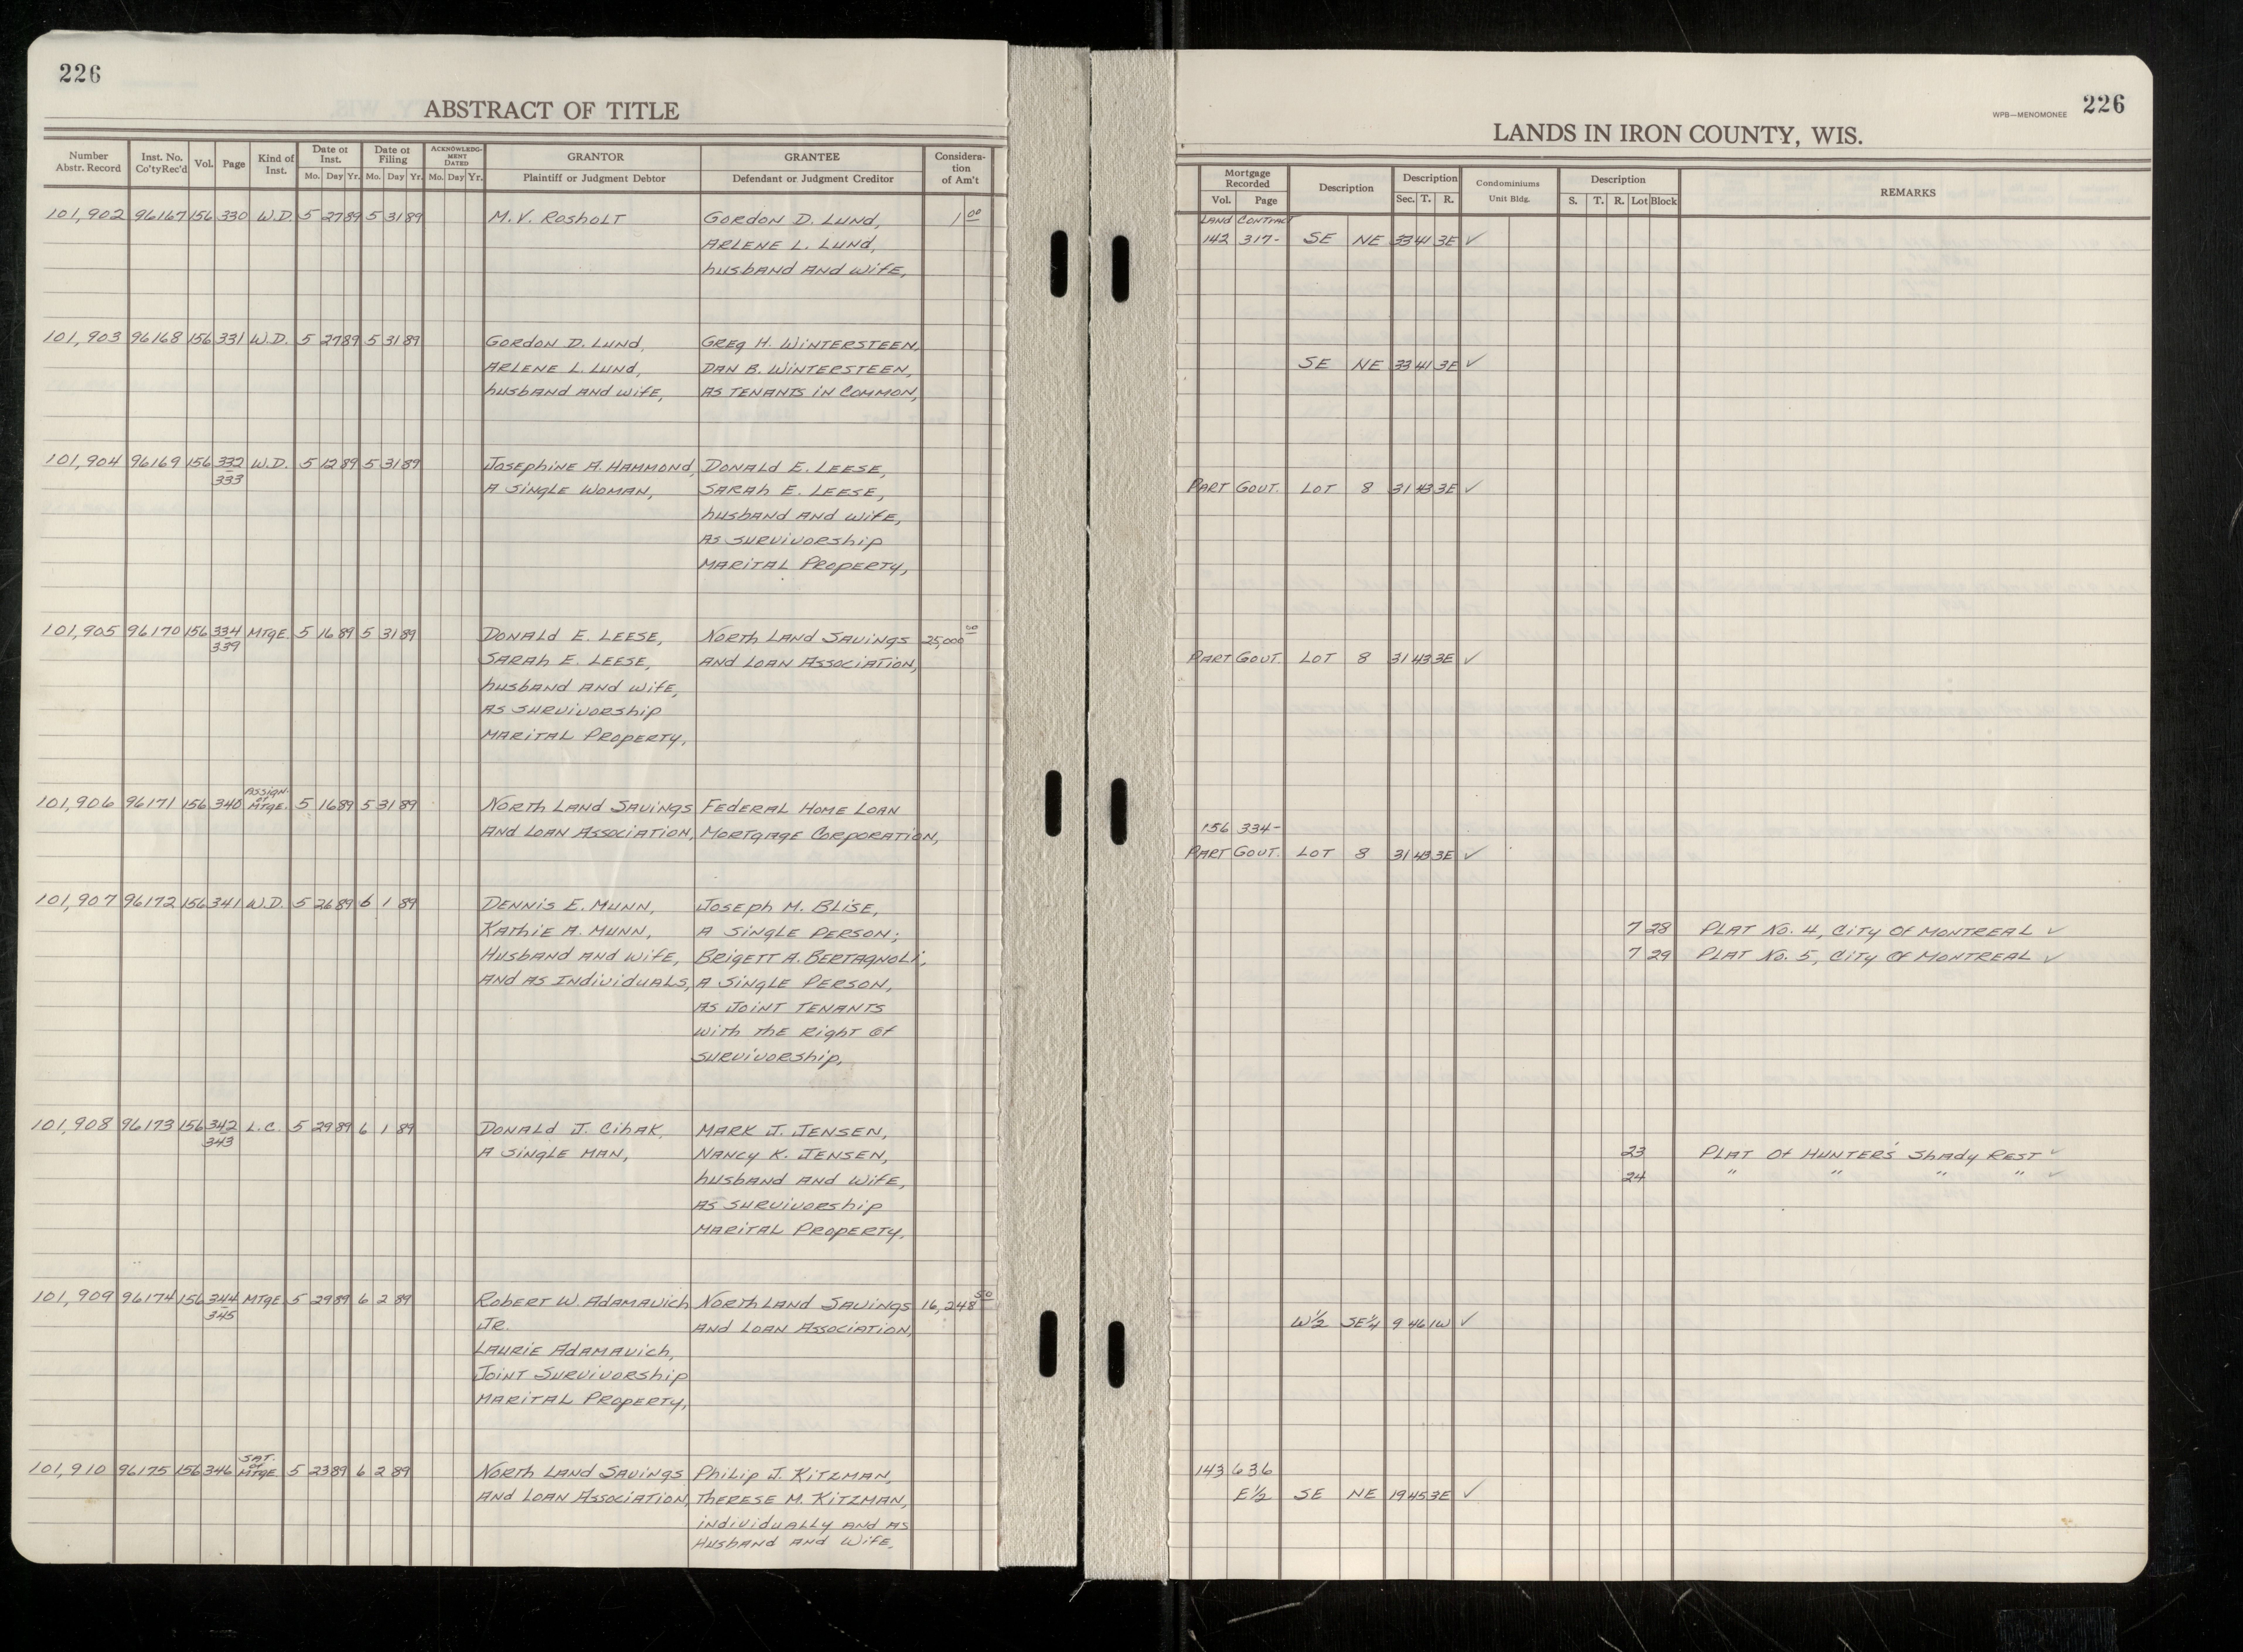 226
ABSTRACT OF TITLE
Number Abstr. Record | Inst. No. Co'ty Rec'd | Vol. | Page | Kind of Inst. | Date of Inst. Mo. Day Yr. | Date of Filing Mo. Day Yr. | ACKNOWLEDGMENT DATED Mo. Day Yr. | GRANTOR Plaintiff or Judgment Debtor | GRANTEE Defendant or Judgment Creditor | Consideration of Am't
101,902 96167 156 330 W.D. 5 27 89 5 31 89 M.V. Rosholt Gordon D. Lund, 1 00
Arlene L. Lund,
husband and wife,
101,903 96168 156 331 W.D. 5 27 89 5 31 89 Gordon D. Lund, Greg H. Wintersteen,
Arlene L. Lund, Dan B. Wintersteen,
husband and wife, as tenants in common,
101,904 96169 156 332 W.D. 5 12 89 5 31 89 Josephine A. Hammond, Donald E. Leese,
333 a single woman, Sarah E. Leese,
husband and wife,
as survivorship
marital property,
101,905 96170 156 334 Mtge. 5 16 89 5 31 89 Donald E. Leese, North Land Savings 25,000 00
339 Sarah E. Leese, and Loan Association,
husband and wife,
as survivorship
marital property,
Assign. of
101,906 96171 156 340 Mtge. 5 16 89 5 31 89 North Land Savings Federal Home Loan
and Loan Association, Mortgage Corporation,
101,907 96172 156 341 W.D. 5 26 89 6 1 89 Dennis E. Munn, Joseph M. Blise,
Kathie A. Munn, a single person;
Husband and wife, Brigett A. Bertagnoli,
and as individuals, a single person,
as joint tenants
with the right of
survivorship,
101,908 96173 156 342 L.C. 5 29 89 6 1 89 Donald J. Cihak, Mark J. Jensen,
343 a single man, Nancy K. Jensen,
husband and wife,
as survivorship
marital property,
101,909 96174 156 344 Mtge. 5 29 89 6 2 89 Robert W. Adamavich North Land Savings 16,248 50
345 Jr. and Loan Association,
Laurie Adamavich,
Joint Survivorship
marital property,
Sat. of
101,910 96175 156 346 Mtge 5 23 89 6 2 89 North Land Savings Philip J. Kitzman,
and Loan Association, Therese M. Kitzman,
individually and as
Husband and wife,
WPB—MENOMONEE 226
LANDS IN IRON COUNTY, WIS.
Mortgage Recorded Vol. Page | Description | Description Sec. T. R. | Condominiums Unit Bldg. | Description S. T. R. Lot Block | REMARKS
Land Contract
142 317- SE NE 33 41 3E ✓
SE NE 33 41 3E ✓
Part Gout. Lot 8 31 43 3E ✓
Part Gout. Lot 8 31 43 3E ✓
156 334-
Part Gout. Lot 8 31 43 3E ✓
7 28 Plat No. 4, City of Montreal ✓
7 29 Plat No. 5, City of Montreal ✓
23 Plat of Hunter's Shady Rest ✓
24 " " " " ✓
W½ SE¼ 9 46 1W ✓
143 636
E½ SE NE 19 45 3E ✓